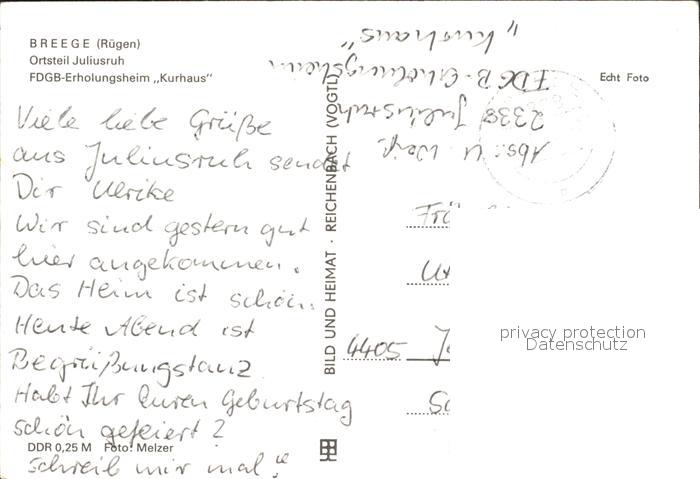 BREEGE (Rügen)
Ortsteil Juliusruh
FDGB-Erholungsheim „Kurhaus"
Viele liebe Grüße
aus Juliusruh sendet
Dir Ulrike
Wir sind gestern gut
hier angekommen.
Das Heim ist schön.
Heute Abend ist
Begrüßungstanz
Habt Ihr Euren Geburtstag
schön gefeiert?
DDR 0,25 M Foto: Melzer
Schreib mir mal!
BILD UND HEIMAT · REICHENBACH (VOGTL)
Echt Foto
Abs.: U.
2338 Juliusruh
FDGB-Erholungsheim
„Kurhaus"
4405
privacy protection
Datenschutz